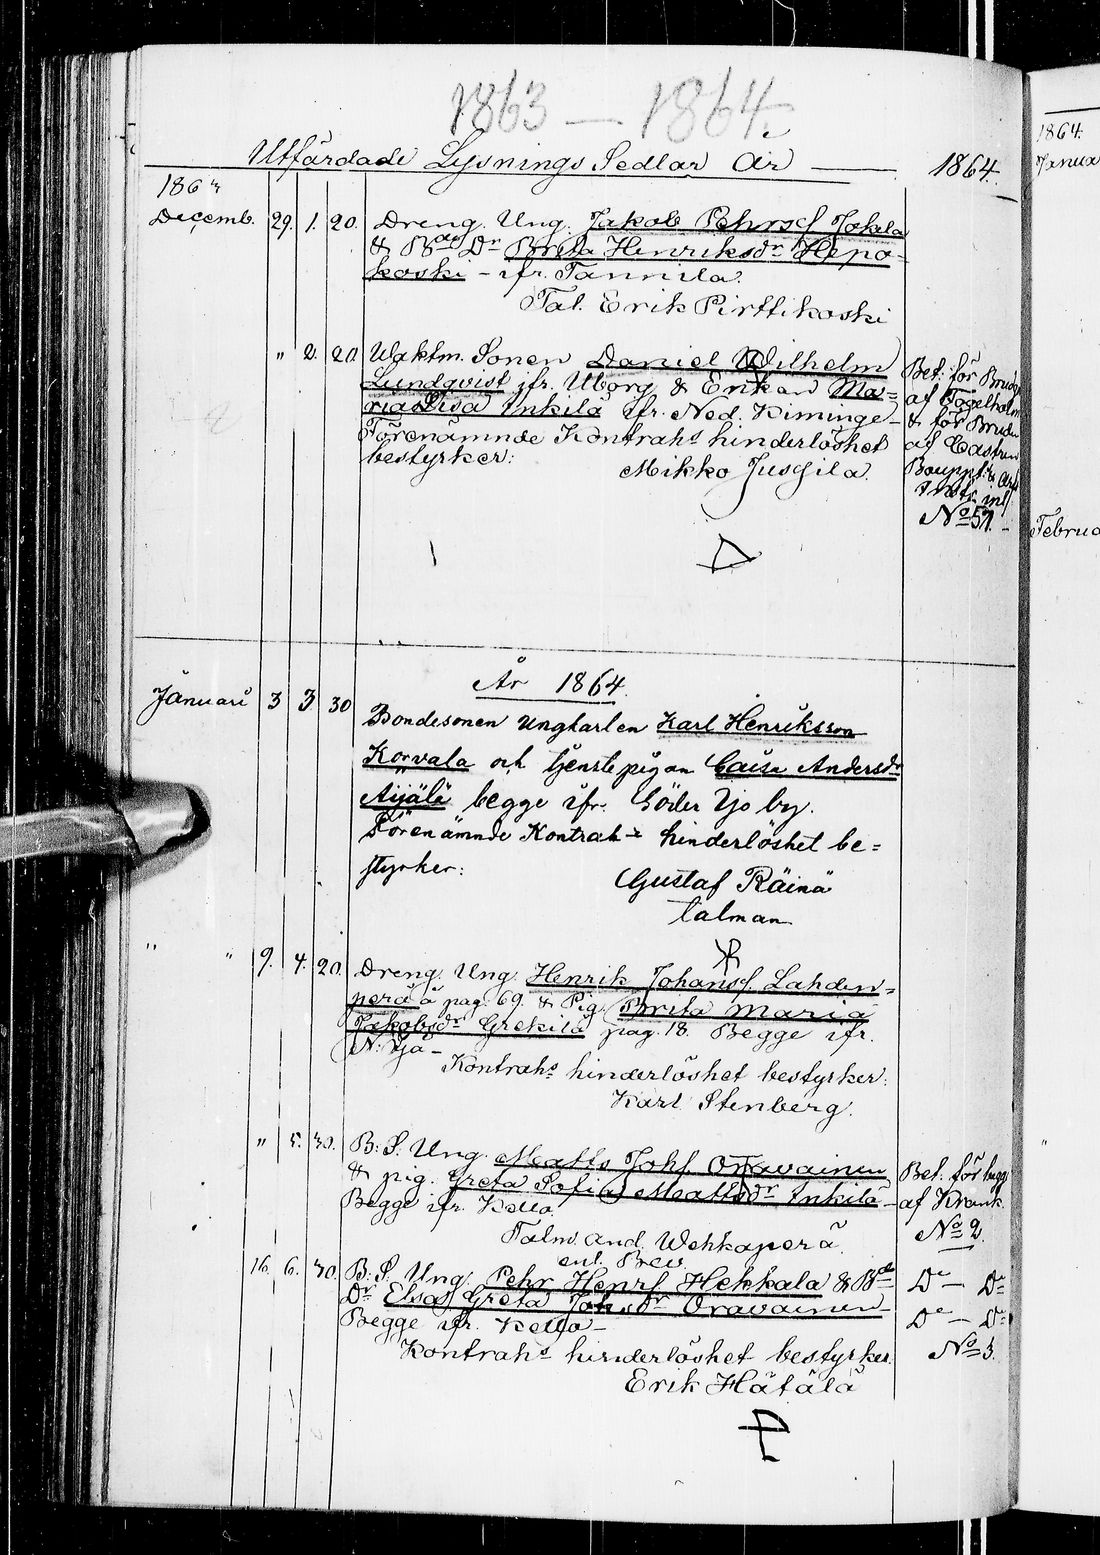 1863 — 1864.
Utfärdade Lysnings Sedlar År — 1864.
1863
Decemb. 29. 1. 20. Dreng. Ung. Jakob Pehrss. Jokela
& Bde Dr Brita Henriksdr Hepo-
koski - ifr. Tannila.
Tal. Erik Pirttikoski
" 2. 20 Waktm. Sonen Daniel Wilhelm
Lundqvist ifr. Uborg & Enkan Ma=
ria Lisa Inkilä ifr. Ned. Kiminge-
Förenämnde Kontrahs hinderlöshet
bestyrker:
Mikko Juscila.
Bet. för Brudg
af Fogelholm
& för Bruden
af Castren
Bouppt. &
No 57.
År 1864.
Januari 3 3 30 Bondesonen Ungkarlen Karl Henriksson
Korvala och tjenstepigan Caisa Andersdr
Äijälä begge ifr. Söder Ijo by.
Förenämnde Kontrah:s hinderlöshet be=
styrker:
Gustaf Räinä
talman
" " 9. 4. 20. Dreng. Ung. Henrik Johanss. Lahden=
perä å pag. 69. & Pig. Brita Maria
Jakobsdr Grekilä pag. 18. Begge ifr.
N. Ijo -
Kontrahs hinderlöshet bestyrker:
Karl Stenberg.
" 5. 30. B. S. Ung. Matts Johs. Oravainen
& pig. Greta Sofia Mattsdr Inkilä -
Begge ifr. Kello.
Talm. And. Wehkaperä
enl. Brev.
Bet. för begge
af Kronk.
No 2.
16. 6. 30. B. S. Ung. Pehr Henrs. Hekkala & Bde
Dr Elsa Greta Johsdr Oravainen
Begge ifr. Kello -
Kontrahs hinderlöshet bestyrker.
Erik Hätälä
Do — Do
Do — Do
No 3.
1864.
Janua
Februa